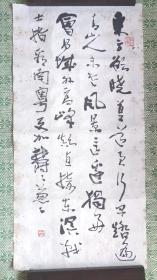 東方欲曉莫道君行早踏遍
青山人未老風景這邊獨好
會昌城外高峰顛連直接東溟戰
士指看南粵更加鬱〻葱〻